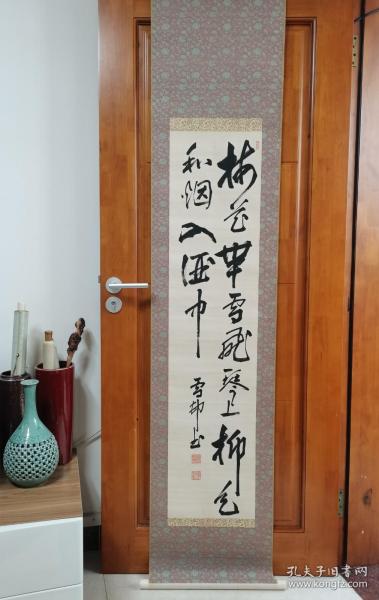 梅花帶雪飛琴上柳色
和烟入酒中
雪村書
孔夫子旧书网
www.kongfz.com